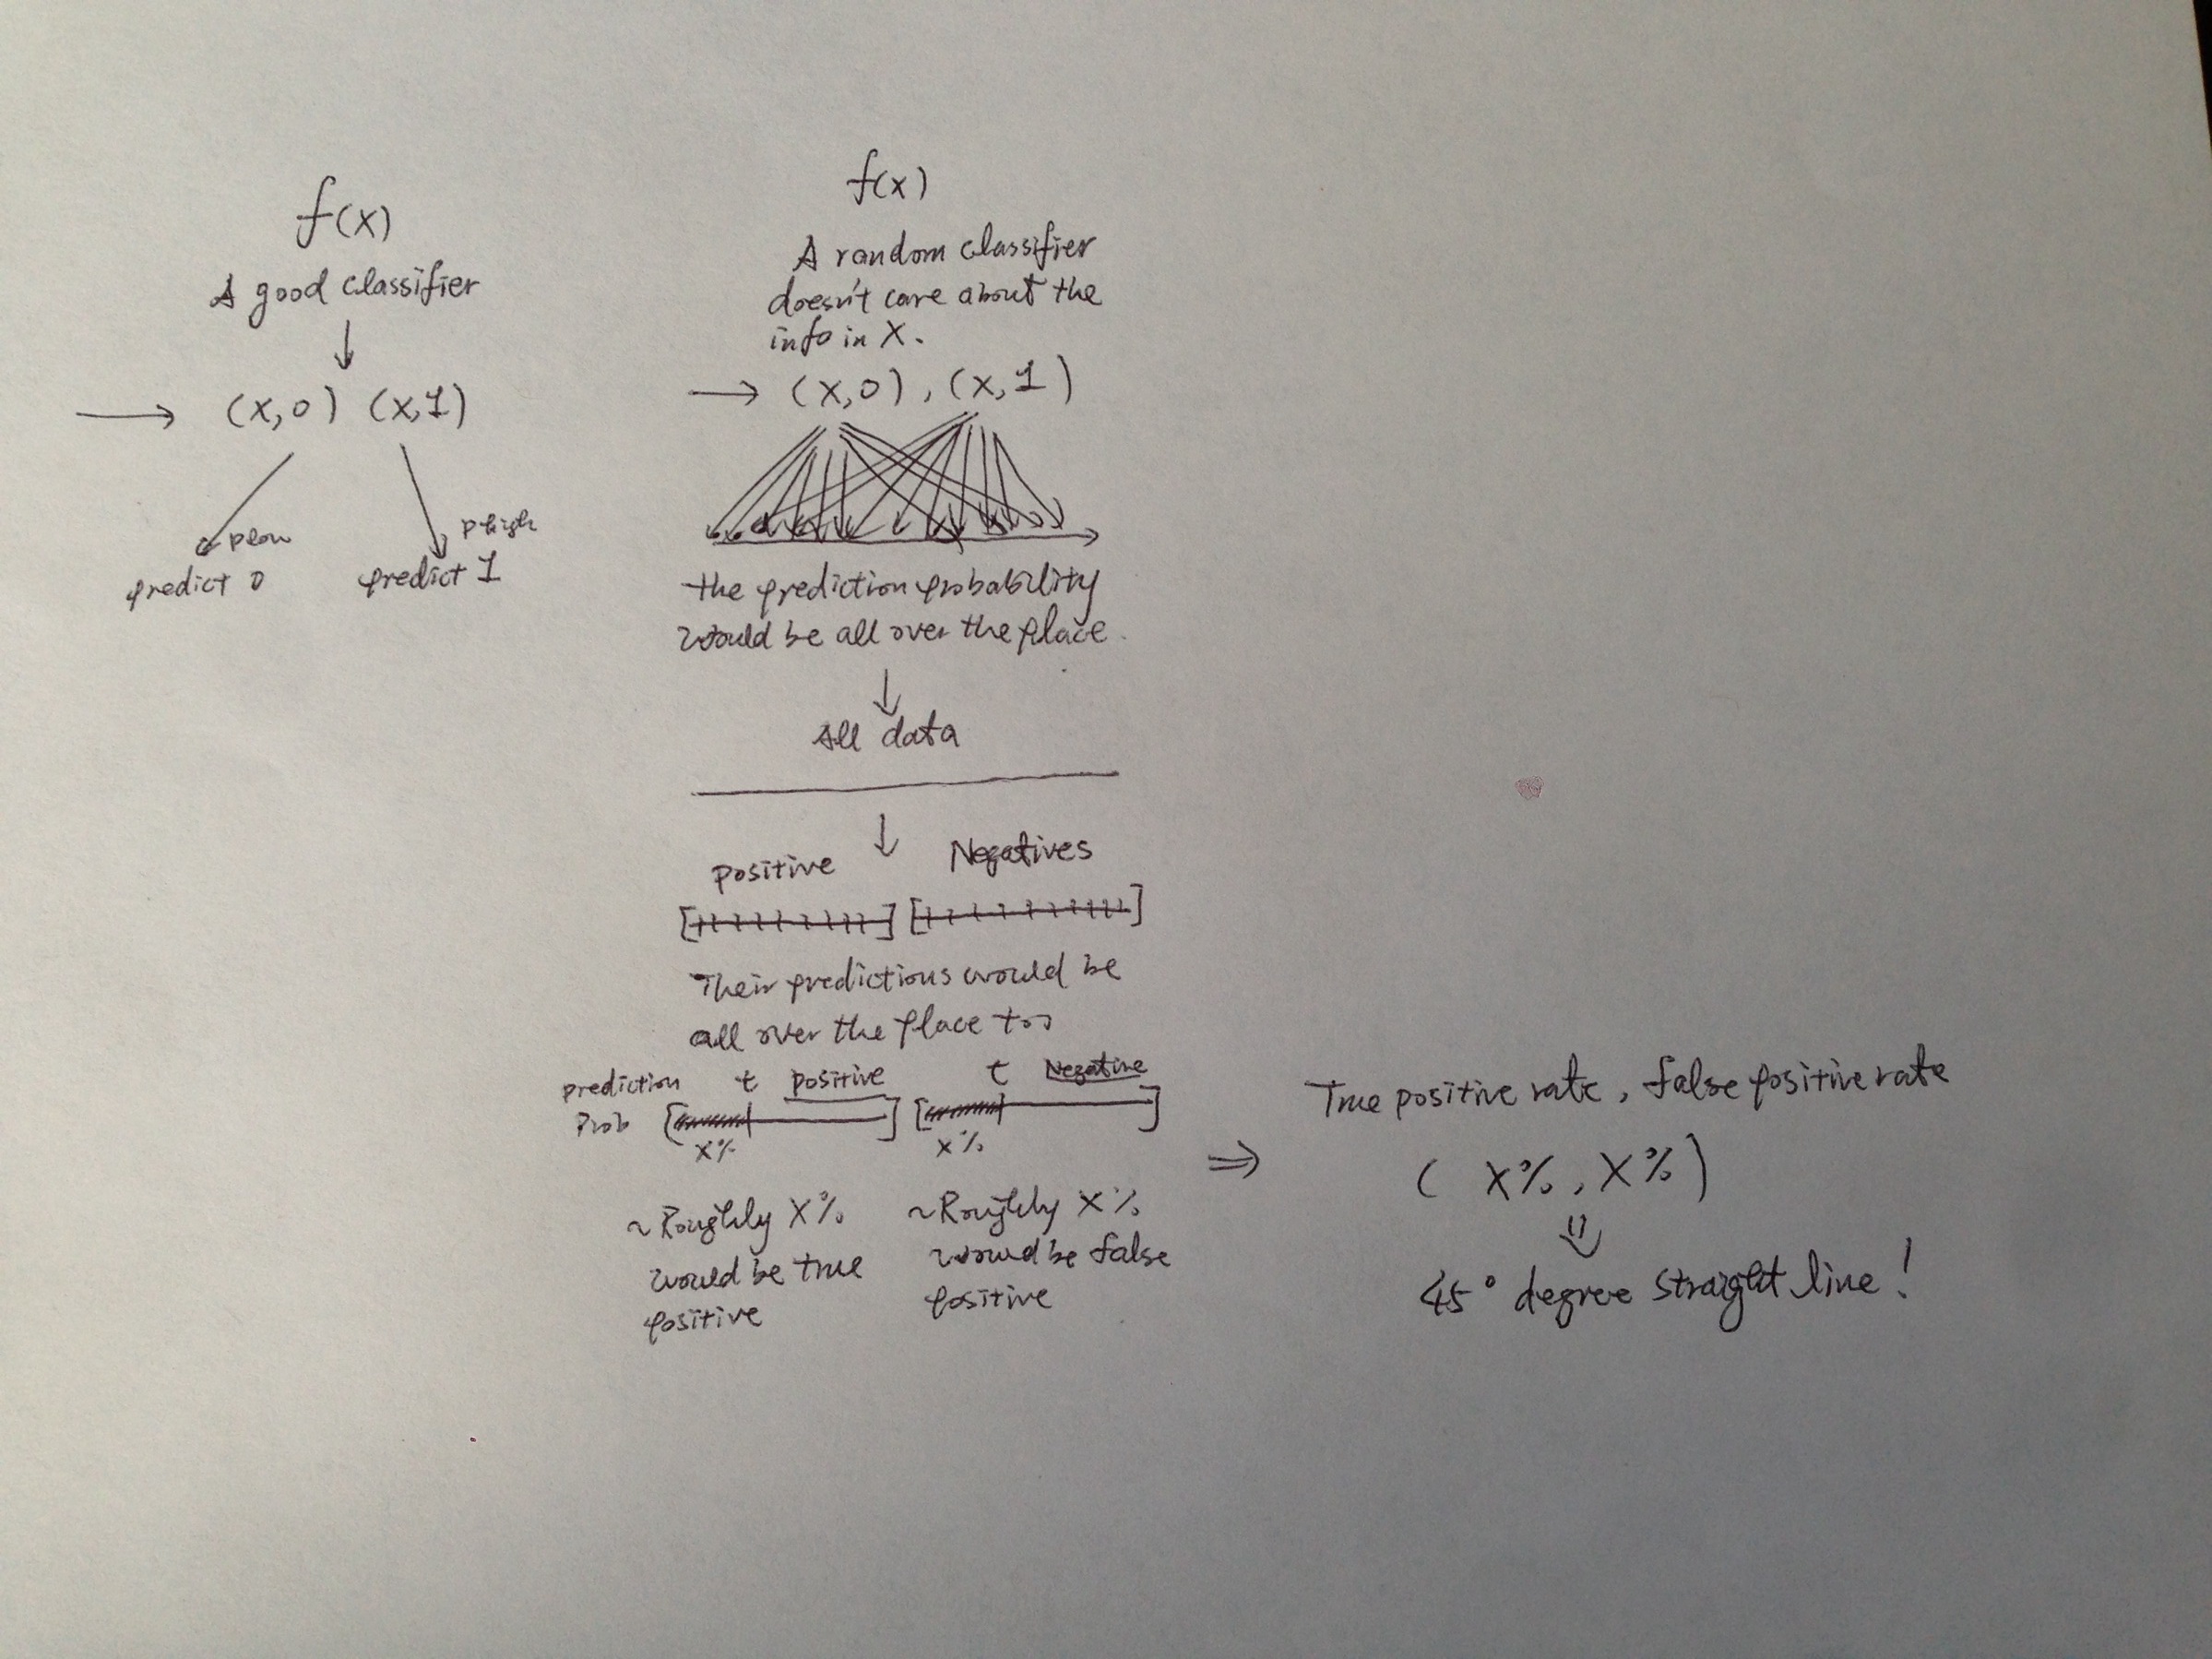 f(x)
A good classifier
(x,0) (x,1)
plow
phigh
predict 0
predict 1
f(x)
A random classifier
doesn't care about the
info in X.
(x,0), (x,1)
the prediction probability
would be all over the place.
All data
positive
Negatives
Their predictions would be
all over the place too
prediction
Prob
t positive
t Negative
x%
x%
~Roughly X%
would be true
positive
~Roughly X%
would be false
positive
True positive rate, false positive rate
( X%, X%)
45° degree straight line!